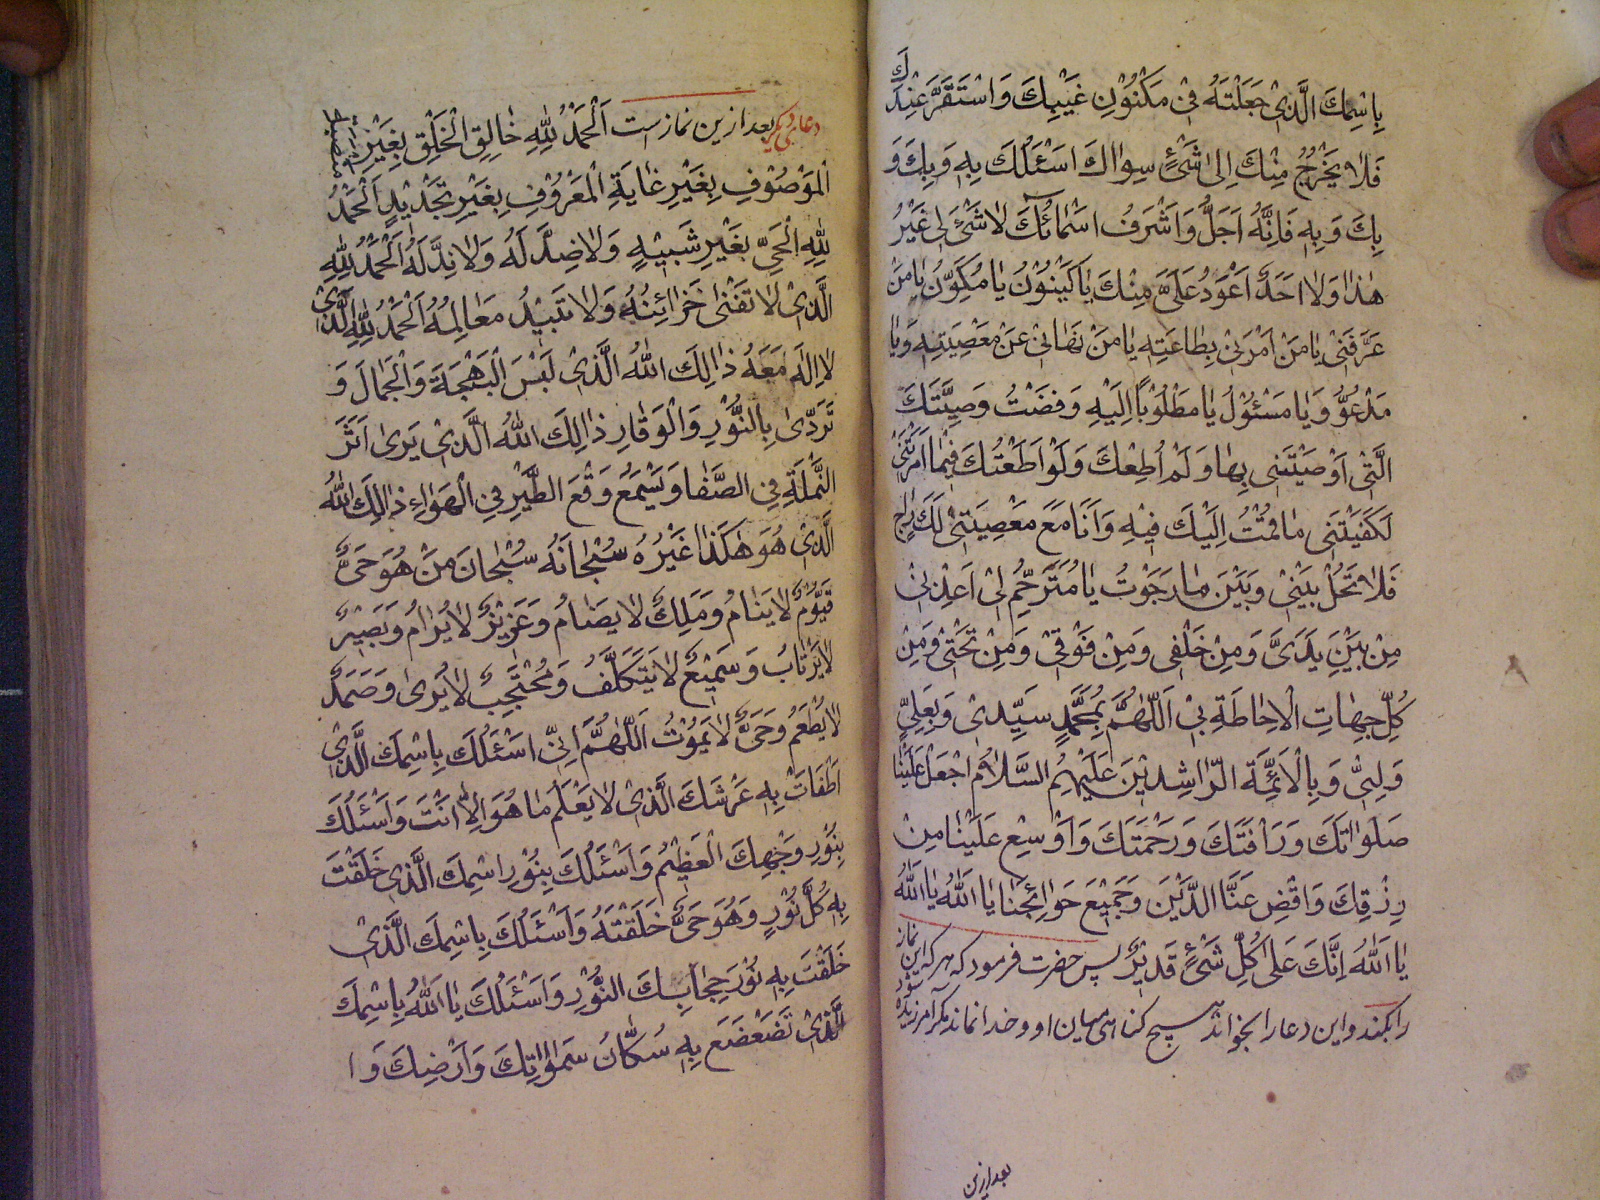 بِاسْمِكَ الَّذِیْ جَعَلْتَهُ فِیْ مَكْنُوْنِ غَیْبِكَ وَاسْتَقَرَّ عِنْدَكَ
فَلَا یَخْرُجُ مِنْكَ اِلٰی شَیْءٍ سِوَاكَ اَسْئَلُكَ بِهٖ وَبِكَ وَ
بِكَ وَبِهٖ فَاِنَّهُ اَجَلُّ وَاَشْرَفُ اَسْمَائِكَ لَا شَیْءَ لِیْ غَیْرُ
هٰذَا وَلَا اَحَدَ اَعْوَدُ عَلَیَّ مِنْكَ یَا كَیْنُوْنُ یَا مُكَوِّنُ یَا مَنْ
عَرَّفَنِیْ یَا مَنْ اَمَرَنِیْ بِطَاعَتِهٖ یَا مَنْ نَهَانِیْ عَنْ مَعْصِیَتِهٖ وَیَا
مَدْعُوُّ وَیَا مَسْئُوْلُ یَا مَطْلُوْبًا اِلَیْهِ رَفَضْتُ وَصِیَّتَكَ
الَّتِیْ اَوْصَیْتَنِیْ بِهَا وَلَمْ اُطِعْكَ وَلَوْ اَطَعْتُكَ فِیْمَا اَمَرْتَنِیْ
لَكَفَیْتَنِیْ مَا قُمْتُ اِلَیْكَ فِیْهِ وَاَنَا مَعَ مَعْصِیَتِیْ لَكَ رَاجٍ
فَلَا تَحُلْ بَیْنِیْ وَبَیْنَ مَا رَجَوْتُ یَا مُتَرَحِّمُ لِیْ اَعِذْنِیْ
مِنْ بَیْنِ یَدَیَّ وَمِنْ خَلْفِیْ وَمِنْ فَوْقِیْ وَمِنْ تَحْتِیْ وَمِنْ
كُلِّ جِهَاتِ الْاِحَاطَةِ بِیْ اَللّٰهُمَّ بِمُحَمَّدٍ سَیِّدِیْ وَبِعَلِیٍّ
وَلِیِّیْ وَبِالْاَئِمَّةِ الرَّاشِدِیْنَ عَلَیْهِمُ السَّلَامُ اجْعَلْ عَلَیْنَا
صَلَوَاتِكَ وَرَاْفَتَكَ وَرَحْمَتَكَ وَاَوْسِعْ عَلَیْنَا مِنْ
رِزْقِكَ وَاقْضِ عَنَّا الدَّیْنَ وَجَمِیْعَ حَوَائِجِنَا یَا اَللهُ یَا اَللهُ
یَا اَللهُ اِنَّكَ عَلٰی كُلِّ شَیْءٍ قَدِیْرٌ پس حضرت فرمود كه هر كه این نماز
را بكند و این دعا را بخواند هیچ گناهی میان او و خدا نماند مگر آمرزیده شود
بعد ازین
دعای دیگر بعد ازین نماز است اَلْحَمْدُ لِلّٰهِ خَالِقِ الْخَلْقِ بِغَیْرِ
الْمَوْصُوْفِ بِغَیْرِ غَایَةِ الْمَعْرُوْفِ بِغَیْرِ تَحْدِیْدٍ اَلْحَمْدُ
لِلّٰهِ الْحَیِّ بِغَیْرِ شَبِیْهٍ وَلَا ضِدَّ لَهُ وَلَا نِدَّ لَهُ اَلْحَمْدُ لِلّٰهِ
الَّذِیْ لَا تَفْنٰی خَزَائِنُهُ وَلَا تَبِیْدُ مَعَالِمُهُ اَلْحَمْدُ لِلّٰهِ الَّذِیْ
لَا اِلٰهَ مَعَهُ ذَالِكَ اللهُ الَّذِیْ لَبِسَ الْبَهْجَةَ وَالْجَمَالَ وَ
تَرَدّٰی بِالنُّوْرِ وَالْوَقَارِ ذَالِكَ اللهُ الَّذِیْ یَرٰی اَثَرَ
النَّمْلَةِ فِی الصَّفَا وَیَسْمَعُ وَقْعَ الطَّیْرِ فِی الْهَوَاءِ ذَالِكَ اللهُ
الَّذِیْ هُوَ هٰكَذَا غَیْرُهُ سُبْحَانَهُ سُبْحَانَ مَنْ هُوَ حَیٌّ
قَیُّوْمٌ لَا یَنَامُ وَمَلِكٌ لَا یُضَامُ وَعَزِیْزٌ لَا یُرَامُ وَبَصِیْرٌ
لَا یَرْتَابُ وَسَمِیْعٌ لَا یَتَكَلَّفُ وَمُحْتَجِبٌ لَا یُرٰی وَصَمَدٌ
لَا یُطْعَمُ وَحَیٌّ لَا یَمُوْتُ اَللّٰهُمَّ اِنِّیْ اَسْئَلُكَ بِاسْمِكَ الَّذِیْ
اَطْفَاْتَ بِهٖ عَرْشَكَ الَّذِیْ لَا یَعْلَمُ مَا هُوَ اِلَّا اَنْتَ وَاَسْئَلُكَ
بِنُوْرِ وَجْهِكَ الْعَظِیْمِ وَاَسْئَلُكَ بِنُوْرِ اسْمِكَ الَّذِیْ خَلَقْتَ
بِهٖ كُلَّ نُوْرٍ وَهُوَ حَیٌّ خَلَقْتَهُ وَاَسْئَلُكَ بِاسْمِكَ الَّذِیْ
خَلَقْتَ بِهٖ نُوْرَ حِجَابِكَ النُّوْرِ وَاَسْئَلُكَ یَا اَللهُ بِاسْمِكَ
الَّذِیْ تَضَعْضَعَ بِهٖ سُكَّانُ سَمٰوَاتِكَ وَاَرْضِكَ وَا